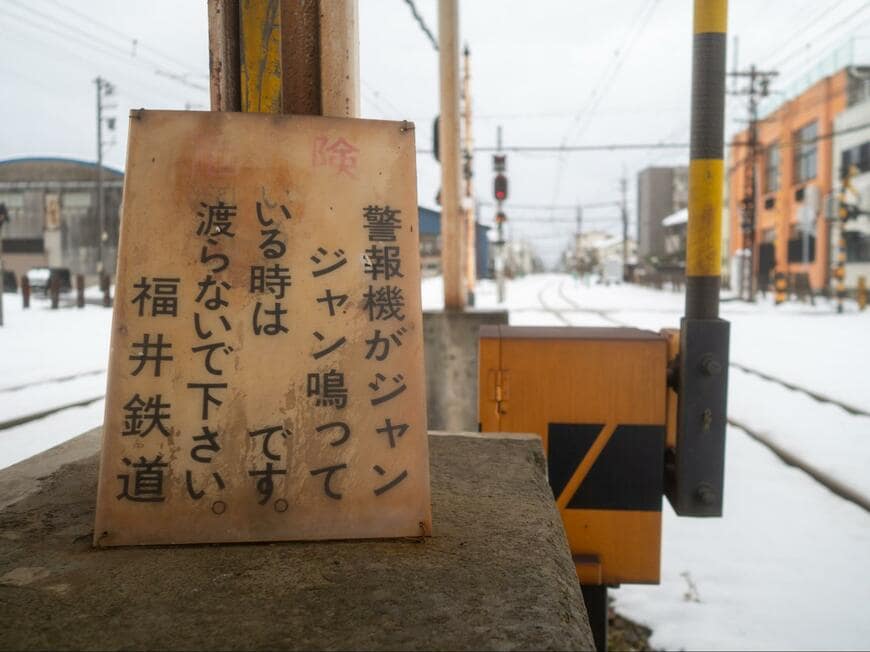 危険
警報機がジャン
ジャン鳴って
いる時は　です。
渡らないで下さい。
福井鉄道